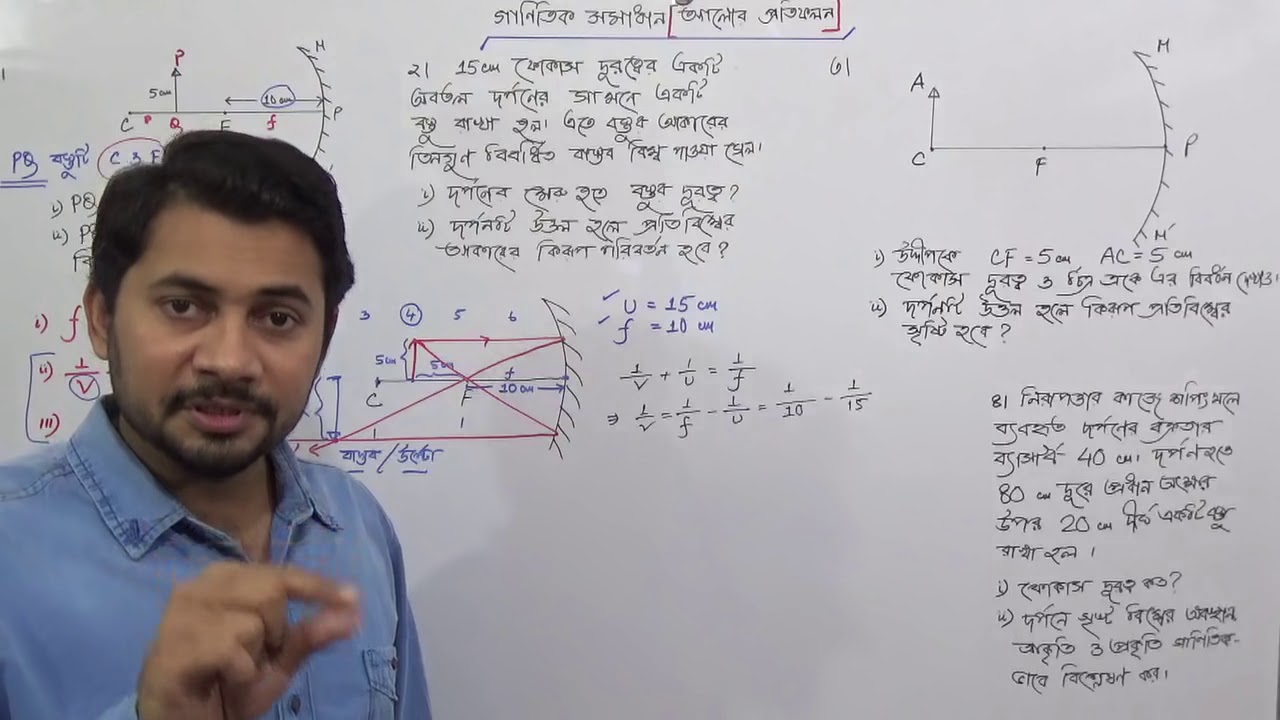 গাণিতিক সমাধান [আলোর প্রতিফলন]
১
P
5cm
10 cm
M
C P Q F f P
PQ বস্তুটি C ও F
i) PQ
ii) P
২। 15cm ফোকাস দূরত্বের একটি
অবতল দর্পনের সামনে একটি
বস্তু রাখা হল। এতে বস্তুর আকারের
তিনগুন বিবর্ধিত বাস্তব বিম্ব পাওয়া গেল।
i) দর্পনের মেরু হতে বস্তুর দূরত্ব?
ii) দর্পনটি উত্তল হলে প্রতিবিম্বের
আকারের কিরূপ পরিবর্তন হবে?
i) f
ii) 1/V
iii)
3 4 5 6
5cm
5cm
f
10 cm
C F
বাস্তব / উল্টো
U = 15 cm
f = 10 cm
1/V + 1/U = 1/f
⇒ 1/V = 1/f - 1/U = 1/10 - 1/15
৩।
M
A
C F P
M'
i) উদ্দীপকে CF = 5 cm, AC = 5 cm
ফোকাস দূরত্ব ও চিত্র একে এর বিবর্ধন দেখাও।
ii) দর্পনটি উত্তল হলে কিরূপ প্রতিবিম্বের
সৃষ্টি হবে?
৪। নিরাপত্তার কাজে শপিংমলে
ব্যবহৃত দর্পনের বক্রতার
ব্যাসার্ধ 40 cm। দর্পন হতে
80 cm দূরে প্রধান অক্ষের
উপর 20 cm দীর্ঘ একটি বস্তু
রাখা হল।
i) ফোকাস দূরত্ব কত?
ii) দর্পনে সৃষ্ট বিম্বের অবস্থান,
আকৃতি ও প্রকৃতি গাণিতিক-
ভাবে বিশ্লেষণ কর।